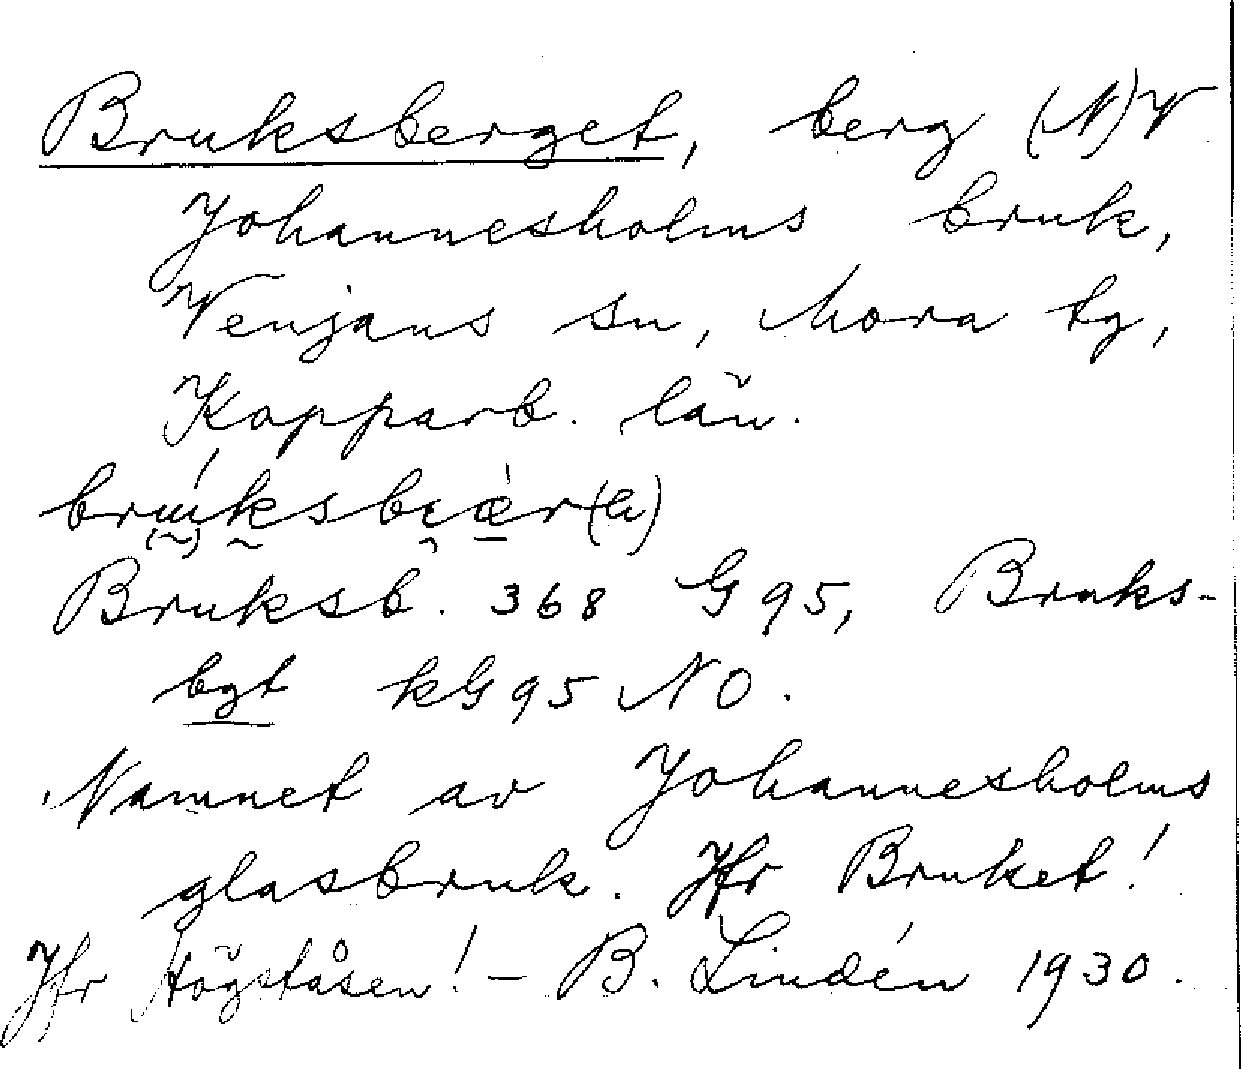 Bruksberget, berg (N)V
Johannesholms bruk,
Venjans sn, Mora tg,
Kopparb. län.
Bruksb. 368 G 95, Bruks-
bgt kG 95 NO.
Namnet av Johannesholms
glasbruk. Jfr Bruket!
Jfr Högståsen! – B. Lindén 1930.